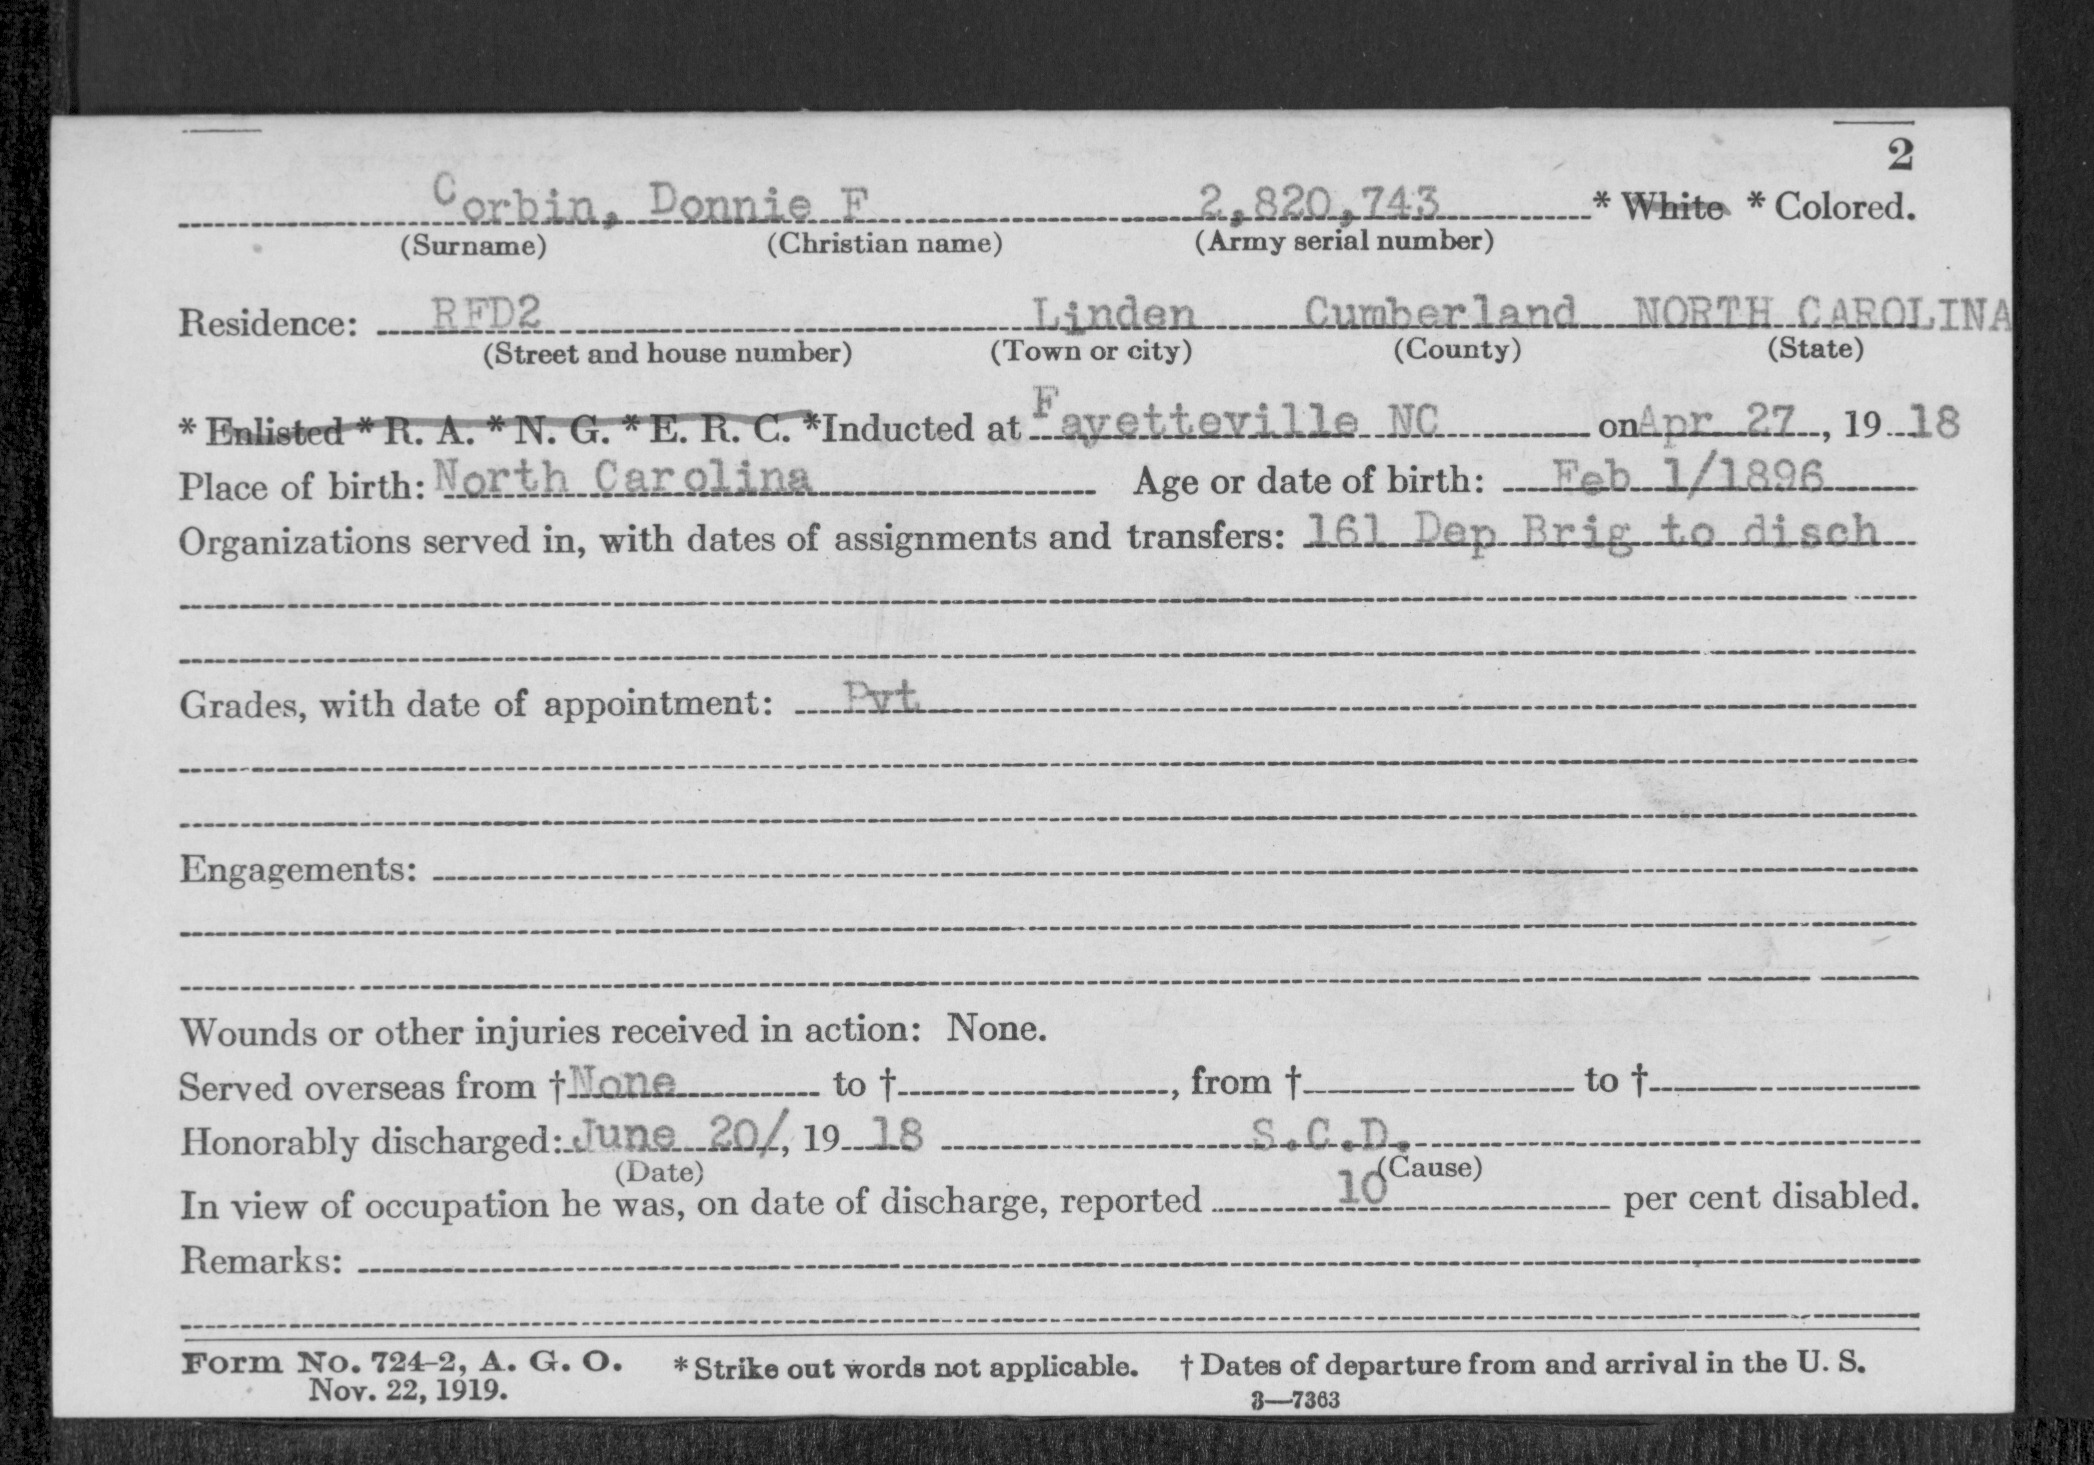 2
Corbin, Donnie F 2,820,743 * White * Colored.
(Surname) (Christian name) (Army serial number)
Residence: RFD2 Linden Cumberland NORTH CAROLINA
(Street and house number) (Town or city) (County) (State)
* Enlisted * R. A. * N. G. * E. R. C. *Inducted at Fayetteville NC on Apr 27, 19 18
Place of birth: North Carolina Age or date of birth: Feb 1/1896
Organizations served in, with dates of assignments and transfers: 161 Dep Brig to disch
Grades, with date of appointment: Pvt
Engagements:
Wounds or other injuries received in action: None.
Served overseas from † None to †, from † to †
Honorably discharged: June 20/, 19 18 S.C.D.
(Date) (Cause)
In view of occupation he was, on date of discharge, reported 10 per cent disabled.
Remarks:
Form No. 724-2, A. G. O. * Strike out words not applicable. † Dates of departure from and arrival in the U. S.
Nov. 22, 1919. 3—7363